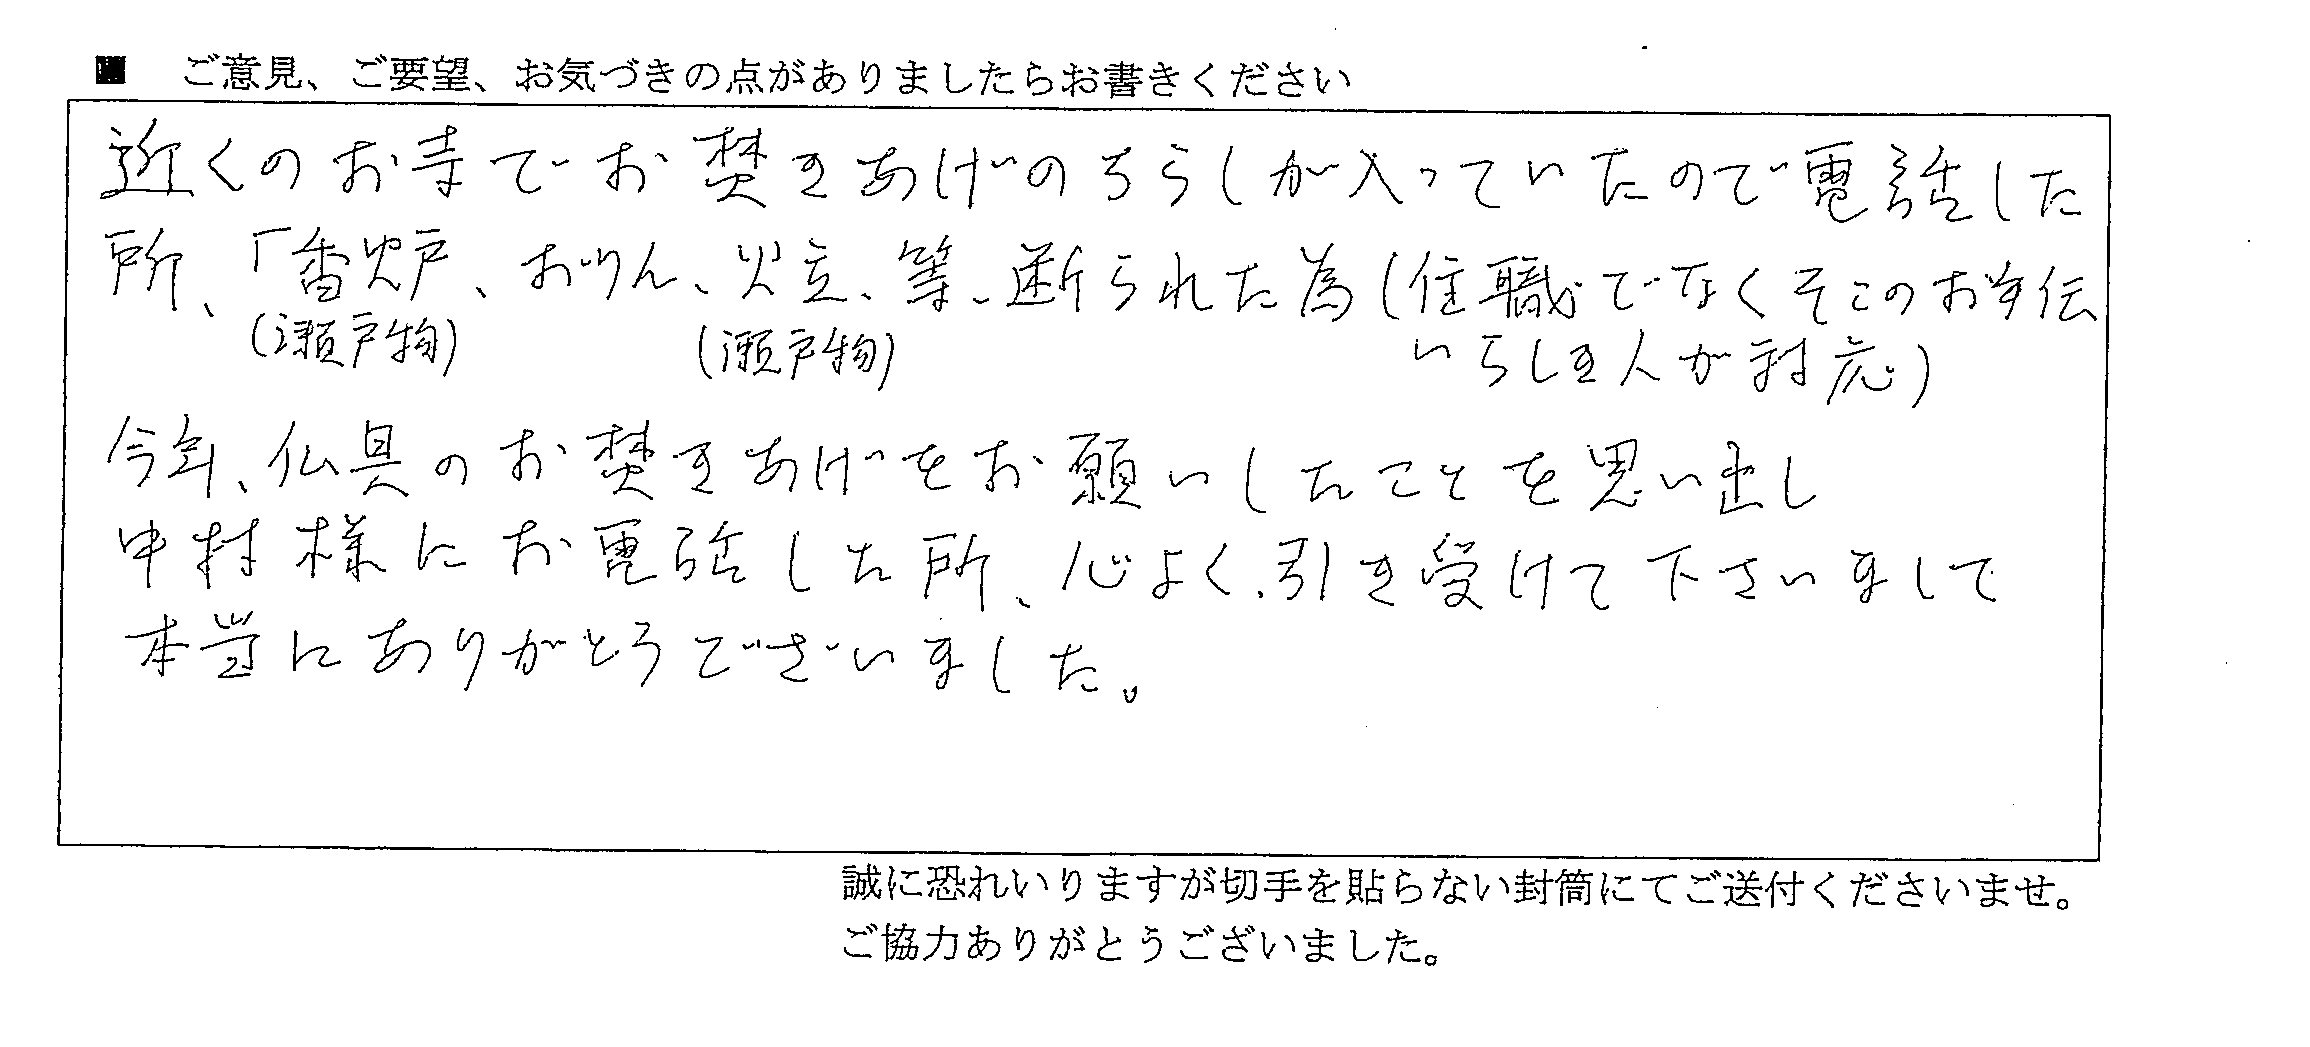 ■ ご意見、ご要望、お気づきの点がありましたらお書きください
近くのお寺でお焚きあげのちらしが入っていたので電話した
所、「香炉、おりん、火立、等、断られた為(住職でなくそこのお手伝
(瀬戸物) (瀬戸物) いらしき人が対応)
今年、仏具のお焚きあげをお願いしたことを思い出し
中村様にお電話した所、心よく、引き受けて下さいまして
本当にありがとうございました。
誠に恐れいりますが切手を貼らない封筒にてご送付くださいませ。
ご協力ありがとうございました。